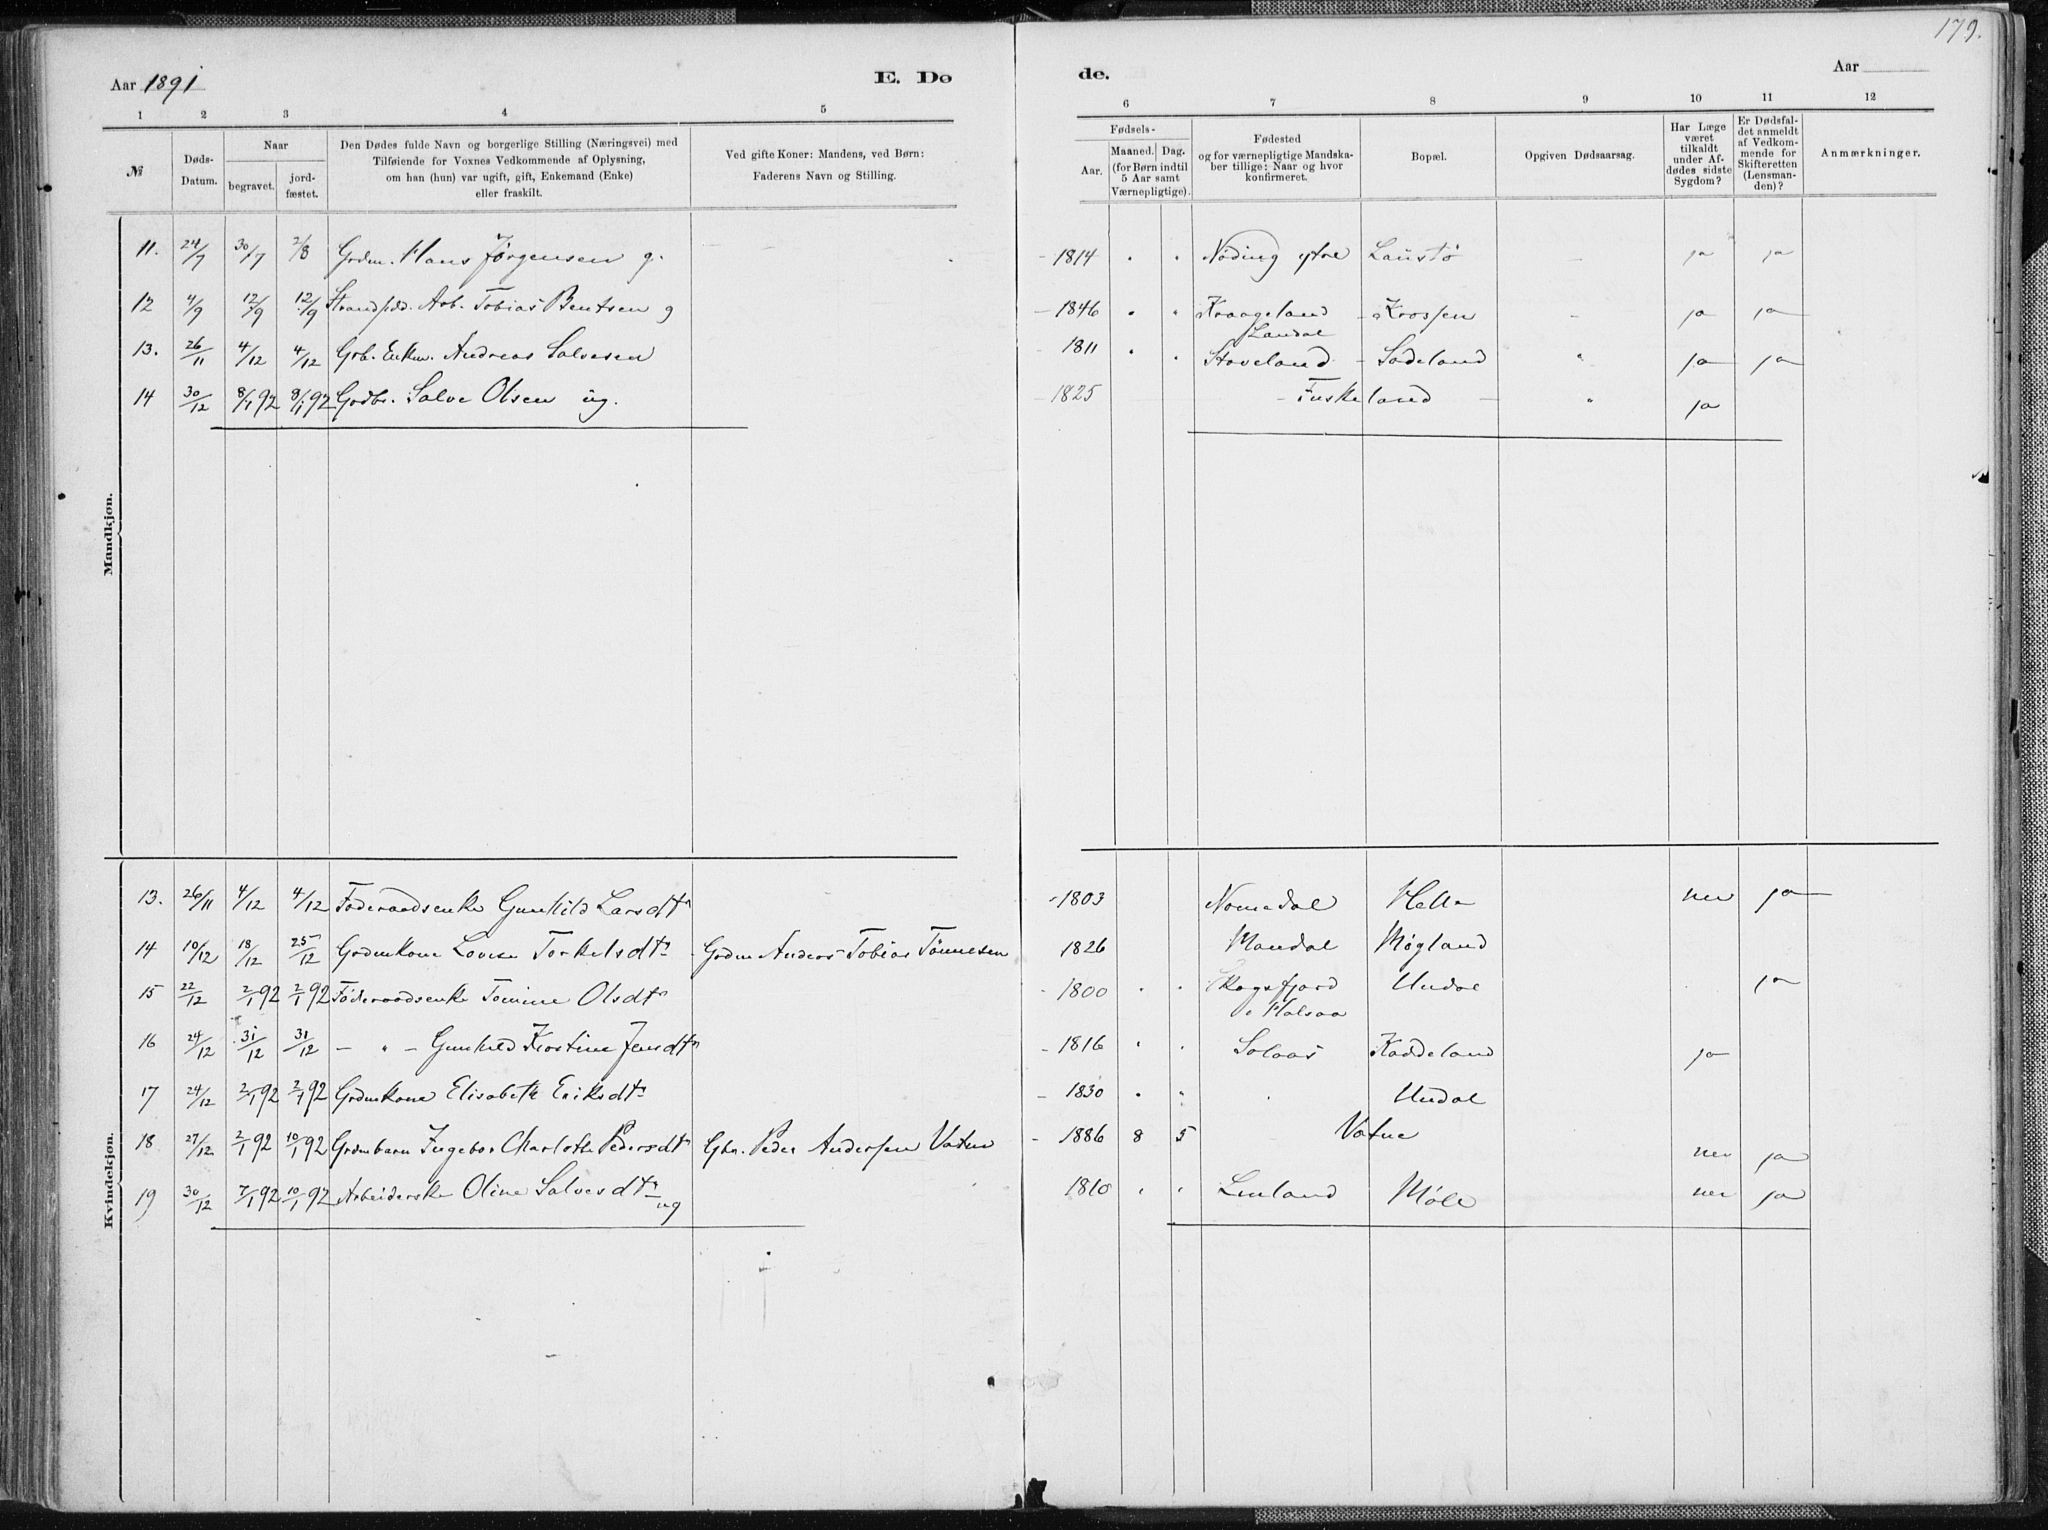 179.
Aar 1891 E. Dø de. Aar
1 2 3 4 5 6 7 8 9 10 11 12
№
Døds-
Datum.
Naar
begravet.
jord-
fæstet.
Den Dødes fulde Navn og borgerlige Stilling (Næringsvei) med
Tilføiende for Voxnes Vedkommende af Oplysning,
om han (hun) var ugift, gift, Enkemand (Enke)
eller fraskilt.
Ved gifte Koner: Mandens, ved Børn:
Faderens Navn og Stilling.
Fødsels-
Aar.
Maaned. Dag.
(for Børn indtil
5 Aar samt
Værnepligtige).
Fødested
og for værnepligtige Mandska-
ber tillige: Naar og hvor
konfirmeret.
Bopæl.
Opgiven Dødsaarsag.
Har Læge
været
tilkaldt
under Af-
dødes sidste
Sygdom?
Er Dødsfal-
det anmeldt
af Vedkom-
mende for
Skifteretten
(Lensman-
den)?
Anmærkninger.
Mandkjøn.
11. 24/7 30/7 2/8 Grdm. Hans Jørgensen g. - 1814 " " Nøding ytre - ja ja
12 4/9 12/9 12/9 Arb. Tobias Bentsen g - 1846 " " Kraageland - Krossen - ja ja
Landal
13. 26/11 4/12 4/12 Grb. Enkm. Andreas Salvesen - 1811 " " Stoveland - Sødeland " ja ja
14 30/12 8/1 92 8/1 92 Grdbr. Salve Olsen ug. - 1825 - Fuskeland - " ja
Kvindekjøn.
13. 26/11 4/12 4/12 Føderaadsenke Gunhild Larsdtr - 1803 Nomedal Helle nei ja
14 10/12 18/12 25/12 Grdmkone Lovise Torkelsdtr Grdm Anders Tobias Tønnesen 1826 Mandal Møgland
15 22/12 2/1 92 2/1 92 Føderaadsenke Tomine Olsdtr - 1800 " " Skogsfjord Undal ja
i Halsaa
16 24/12 31/12 31/12 - " - Gunhild Kirstine Jensdtr - 1816 " " Solaas Kaddeland ja
17 24/12 2/1 92 2/1 92 Grdmkone Elisabeth Eriksdtr - 1830 " " " Undal
18 27/12 2/1 92 10/1 92 Grdmbarn Ingebor Charlothe Pedersdtr Gbr. Peder Andersen Vatne - 1886 8 5 Vatne nei ja
19 30/12 7/1 92 10/1 92 Arbeiderske Oline Salvesdtr 1810 " " Lenland Møle nei ja
ug